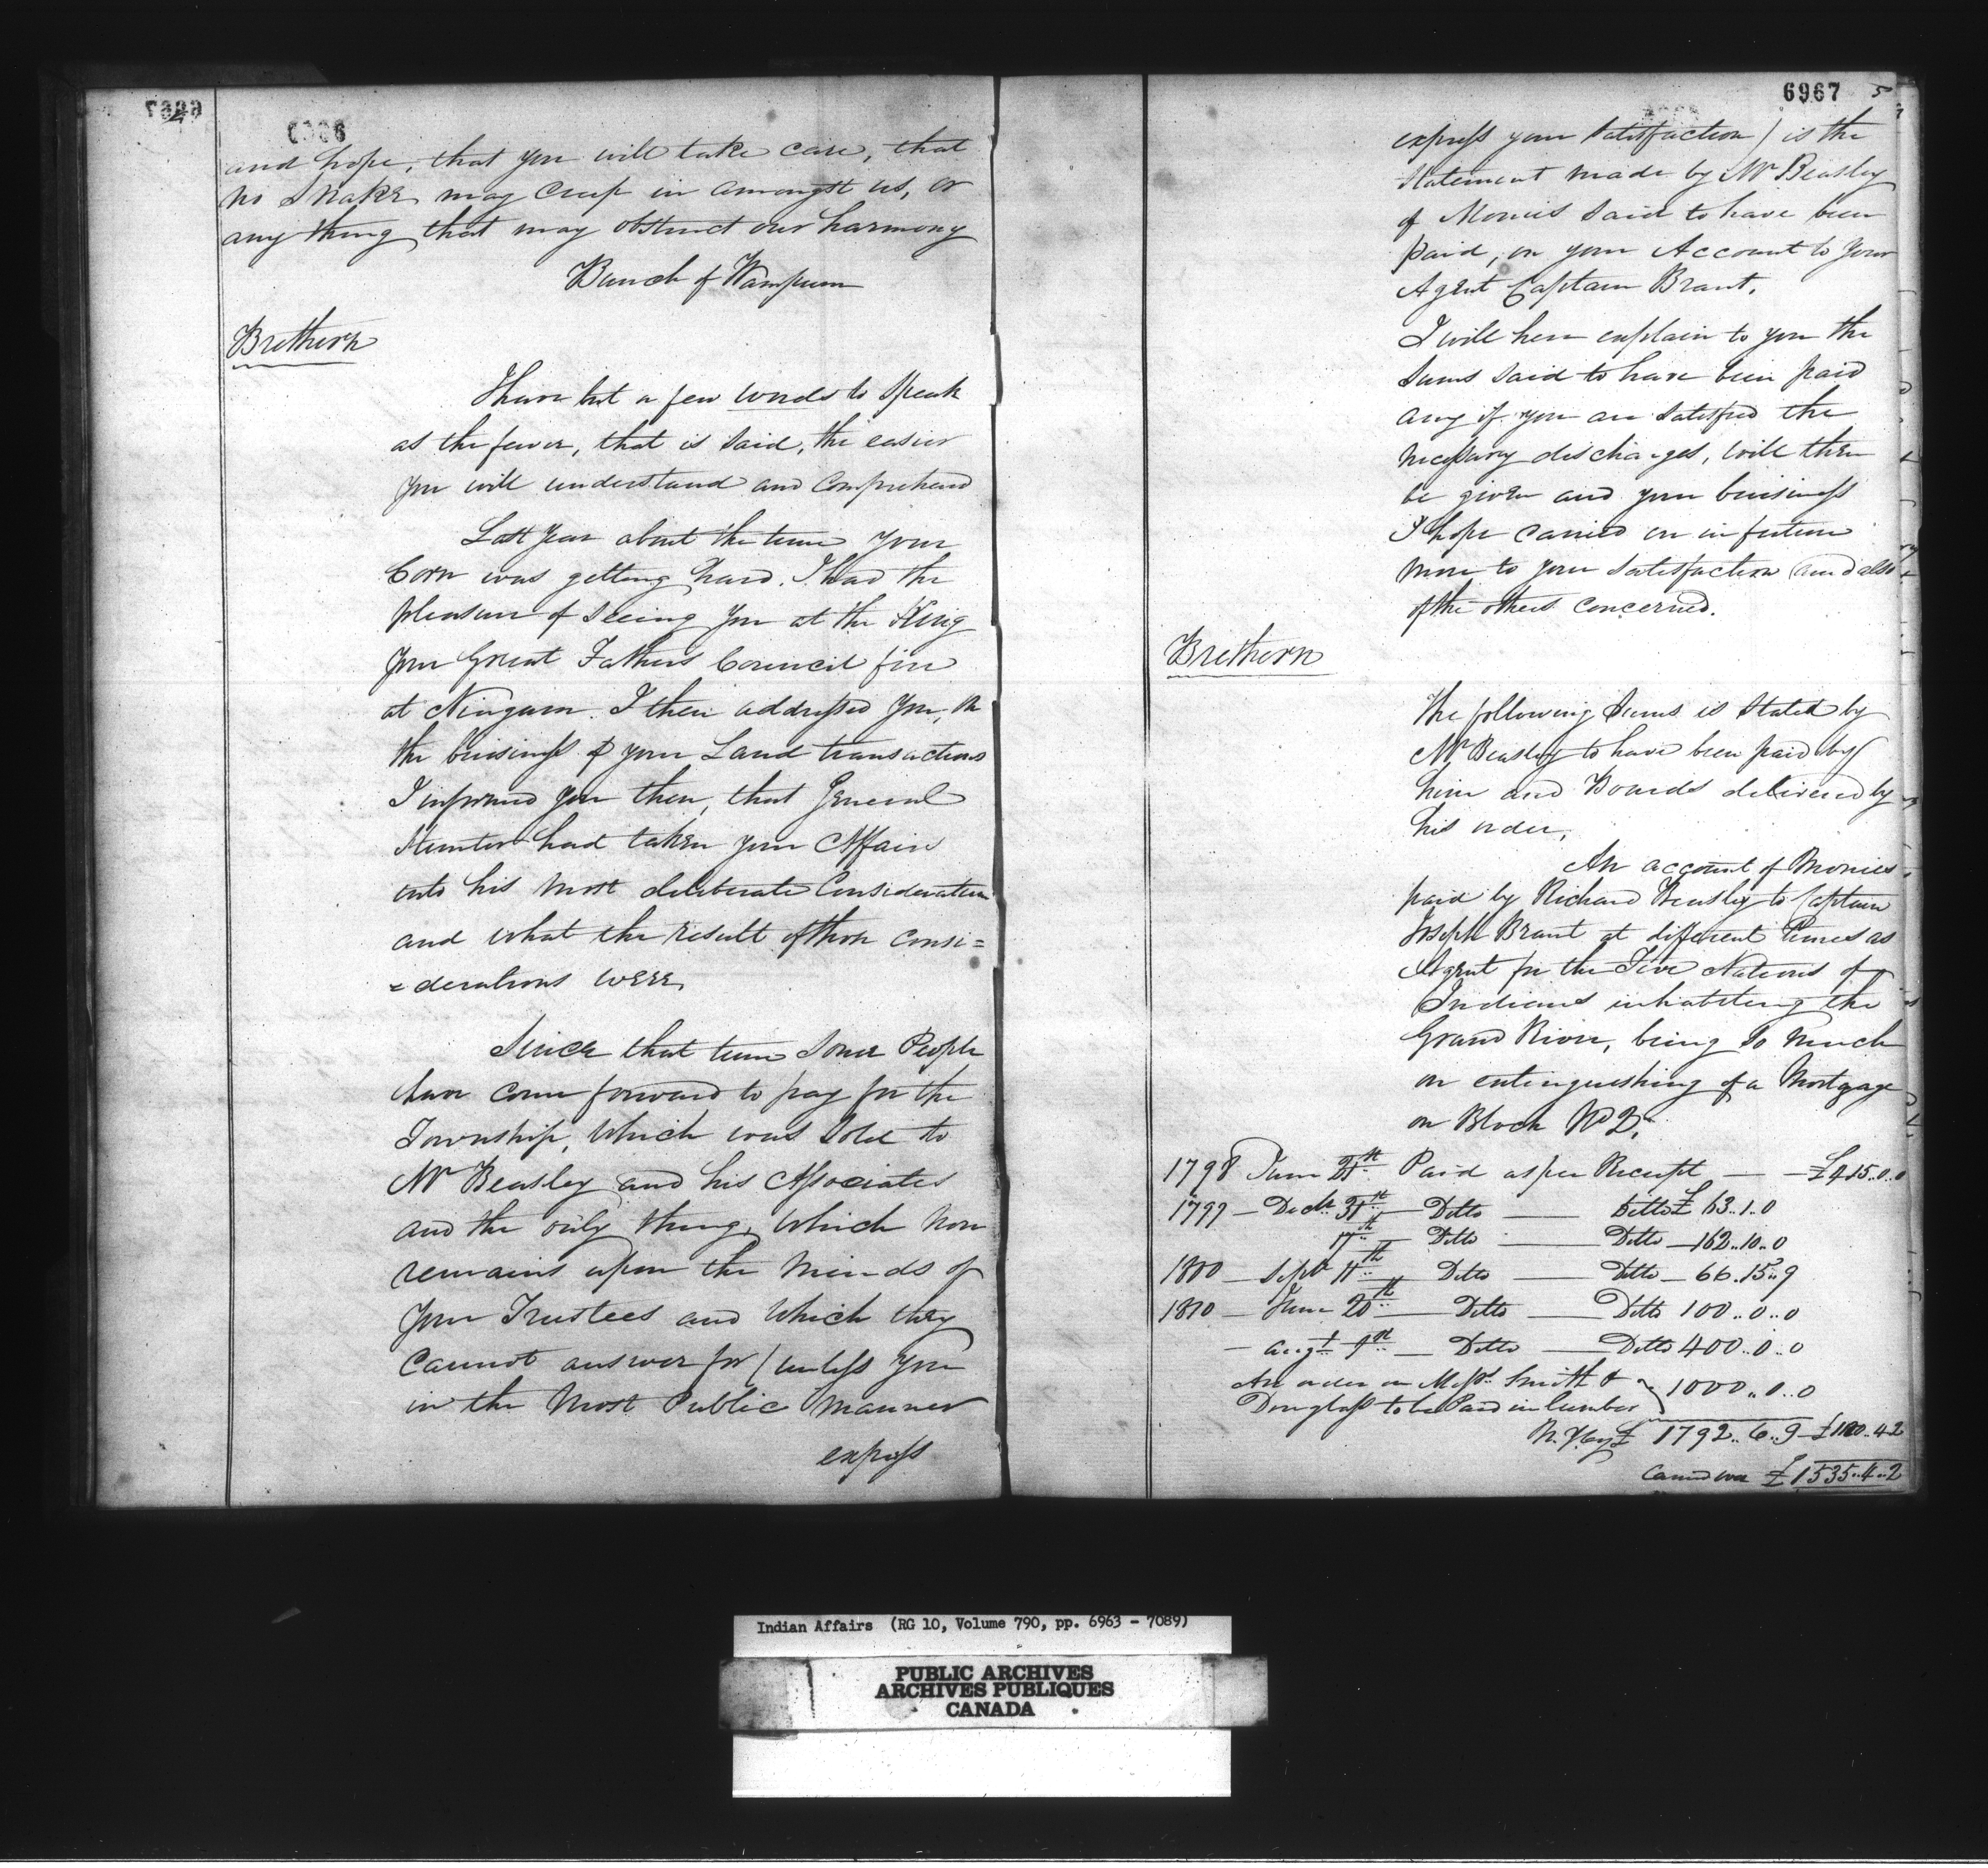 6966
and hope, that you will take care, that
no Snake may creep in amongst us, or
any thing that may obstruct our harmony
Bunch of Wampum
Brethern
I have but a few words to Speak
as the fewer, that is said, the easier
you will understand and Comprehend
Last Year about the time your
Corn was getting hard. I had the
pleasure of seeing you at the King
Your Great Fathers Council fire
at Niagara. I then addressed You, on
the buisiness of your Land transactions
I informed you then, that General
Hunter had taken your Affairs
into his most deliberate Consideration
and what the result of those consi=
=derations were,
Since that time some People
have come forward to pay for the
Township, which was Sold to
Mr Beasley and his Associates
and the only thing, which now
remains upon the minds of
Your Trustees and which they
cannot answer for (unless you
in the Most Public Manner
express
6967 5
express your Satisfaction) is the
Statement made by Mr Beasley
of Monies Said to have been
paid, on your Account to Your
Agent Captain Brant.
I will here explain to you the
Sums Said to have been paid
any if you are Satisfied the
necessary discharges, will then
be given and your buisiness
I hope carried on in future
more to your Satisfaction and also
of the others concerned.
Brethern
The following Sums is Stated by
Mr Beasley to have been paid by
him and Bonds delivered by
his order,
An account of Monies
paid by Richard Beasley to Captain
Joseph Brant at different Times as
Agent for the Five Nations of
Indians inhabiting the
Grand River, being so much
on extinguishing of a Mortgage
on Block No 2,
1798 June Paid as per Receipt — £415..0..0
1799 — Decr 31st — Ditto — Ditto £ 63..1..0
17th — Ditto — Ditto — 162..10..0
1800 — Septr 11th — Ditto — Ditto — 66..15..9
1810 — June 20th — Ditto — Ditto 100..0..0
— Augt 9th — Ditto — Ditto 400..0..0
An order on Messrs Smith &
Douglass to be Paid in Lumber } 1000..0..0
N. Y Cy £ 1792..6..9
Carried over £1535..4..2
Indian Affairs (RG 10, Volume 790, pp. 6963 - 7089)
PUBLIC ARCHIVES
ARCHIVES PUBLIQUES
CANADA